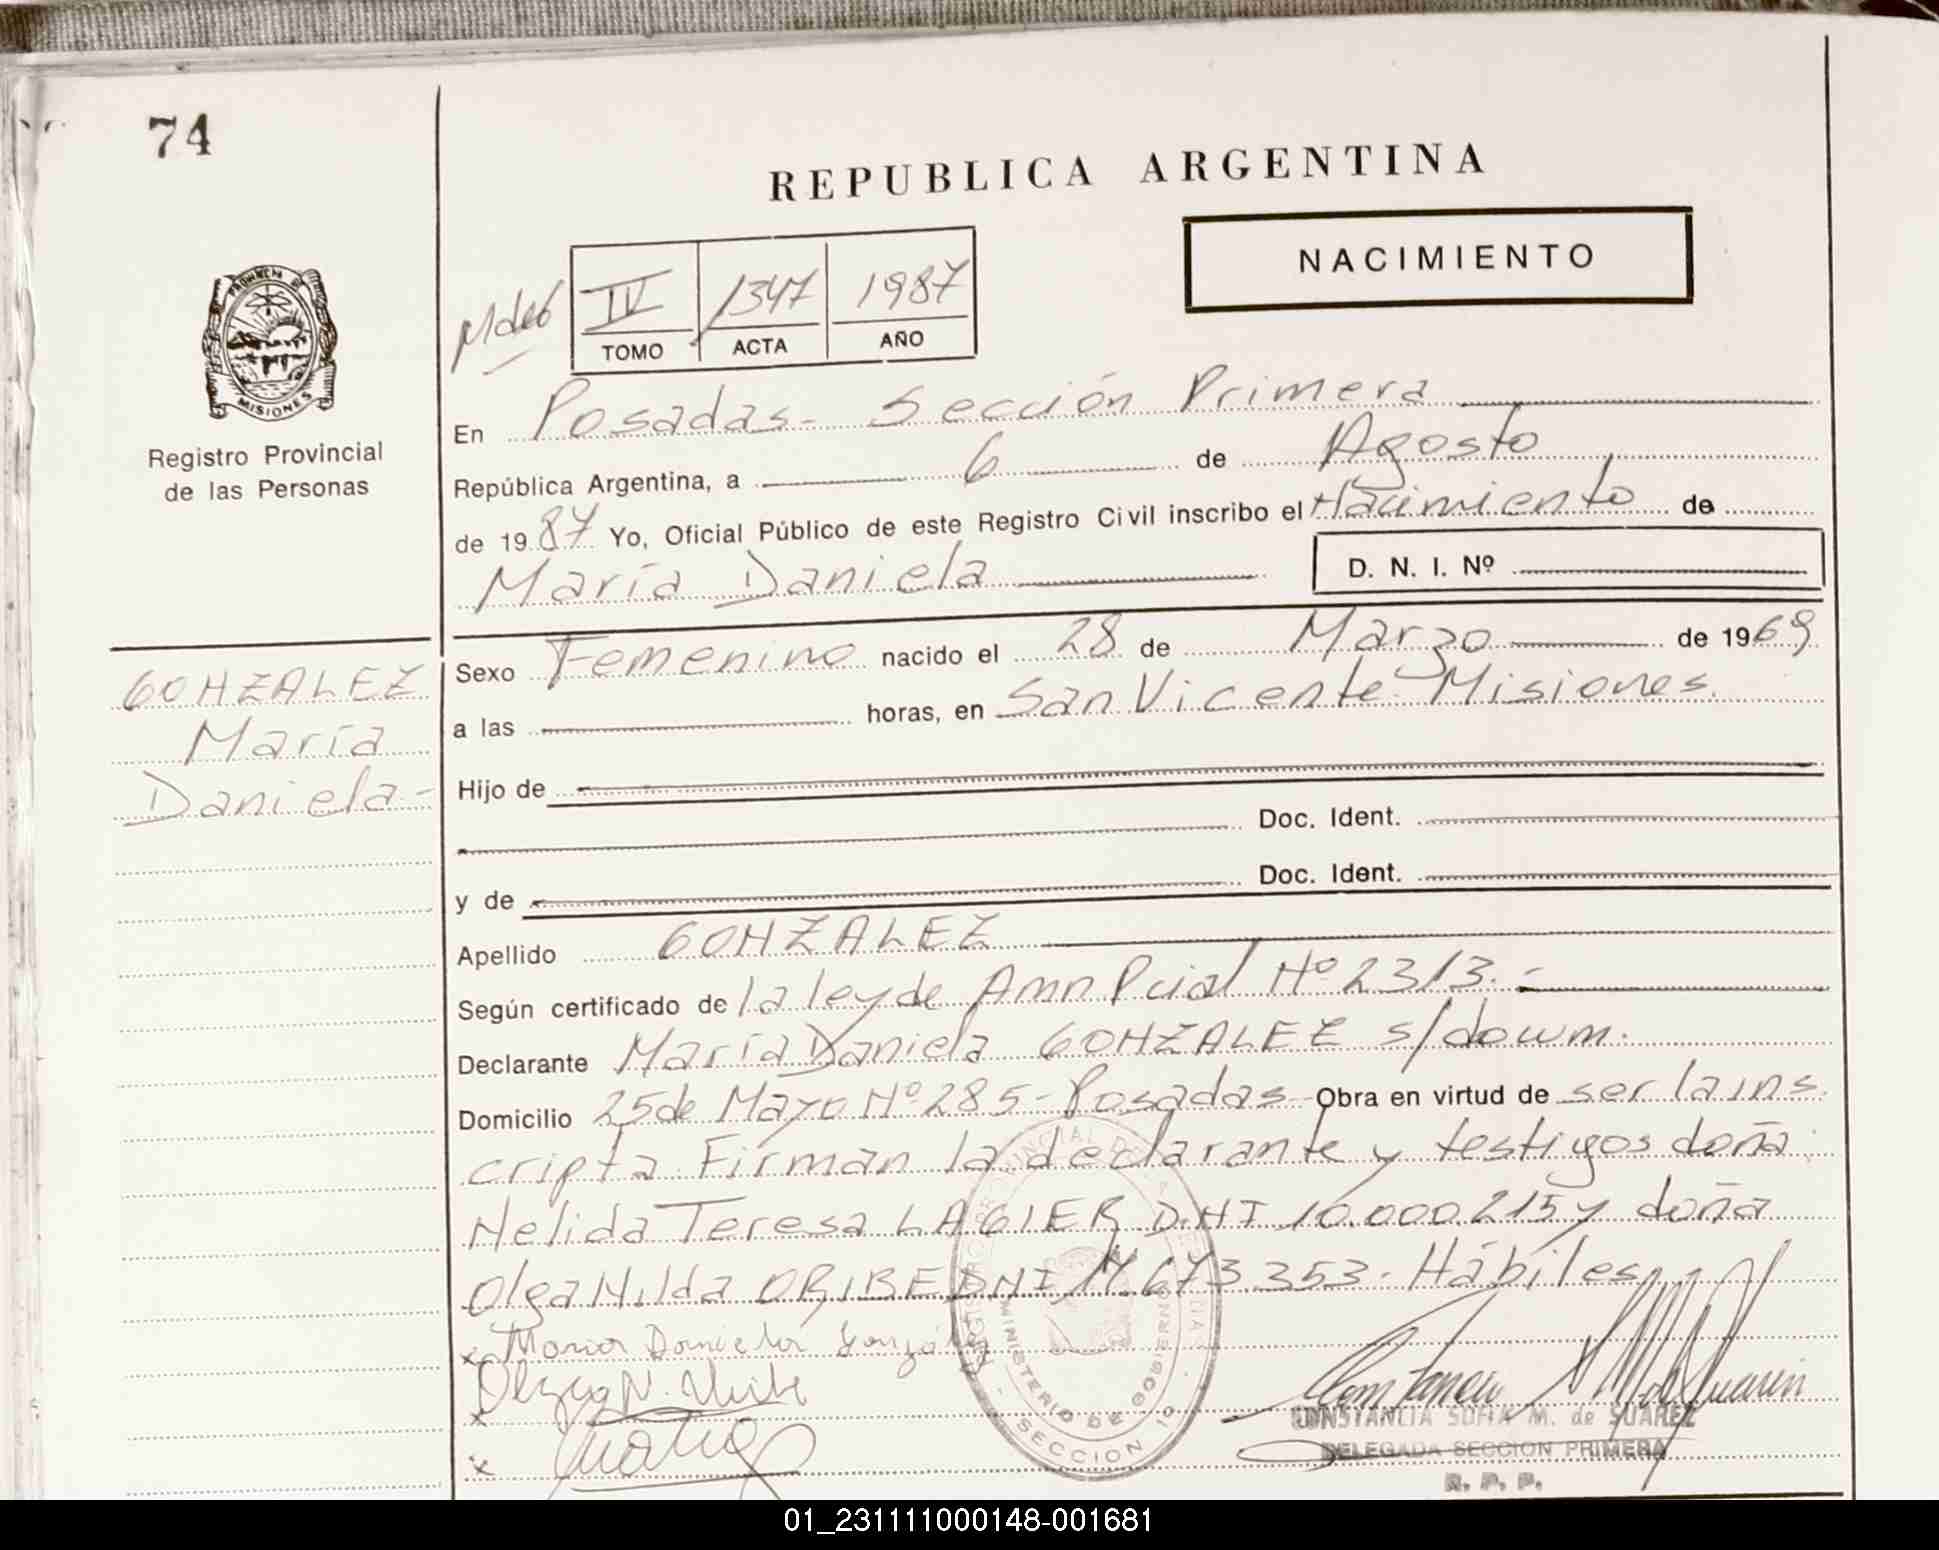 74
REPUBLICA ARGENTINA
NACIMIENTO
IV 1347 1987
TOMO ACTA AÑO
PROVINCIA DE
MISIONES
Registro Provincial
de las Personas
En Posadas- Sección Primera
República Argentina, a 6 de Agosto
de 1987 Yo, Oficial Público de este Registro Civil inscribo el Nacimiento de
María Daniela
D. N. I. Nº
GONZALEZ
María
Daniela-
Sexo Femenino nacido el 28 de Marzo de 1969
a las horas, en San Vicente-Misiones.
Hijo de
Doc. Ident.
y de Doc. Ident.
Apellido GONZALEZ
Según certificado de la ley de Amn Pcial Nº 2313.-
Declarante María Daniela GONZALEZ s/docum.
Domicilio 25 de Mayo Nº 285-Posadas- Obra en virtud de ser la ins
cripta Firman la declarante y testigos doña:
Nelida Teresa LAGIER DNI 10.000.215 y doña
Olga Nilda ORIBE DNI 11.673.353. Hábiles
x Maria Daniela González
x Olga N. Uribe
x
MINISTERIO DE GOBIERNO
SECCION 1º
CONSTANCIA SOFIA M. de SUAREZ
DELEGADA SECCION PRIMERA
R. P. P.
01_231111000148-001681